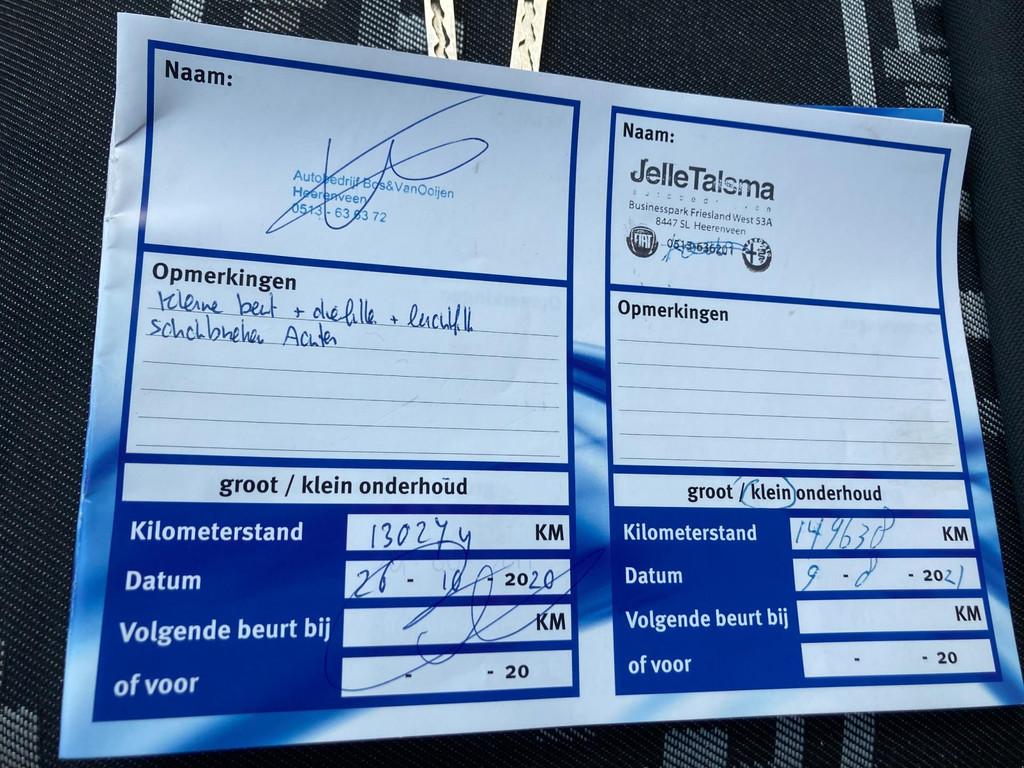 Naam:
Autobedrijf Bos&VanOoijen
Heerenveen
0513 - 63 63 72
Opmerkingen
Kleine beurt + oliefilter + luchtfilt
schokbreker Achter
groot / klein onderhoud
Kilometerstand 130274 KM
Datum 26 - 10 - 2020
Volgende beurt bij KM
of voor - - 20
Naam:
JelleTalsma
autobedrijven
Businesspark Friesland West 53A
8447 SL Heerenveen
FIAT 0513-636201
Opmerkingen
groot / klein onderhoud
Kilometerstand 149638 KM
Datum 9 - 8 - 2021
Volgende beurt bij KM
of voor - - 20